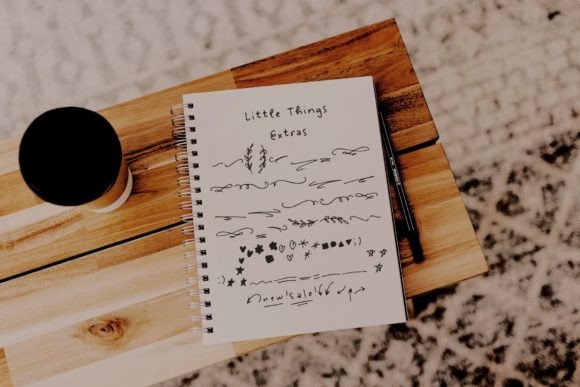 Little Things
Extras
;)
:)
new! sale!